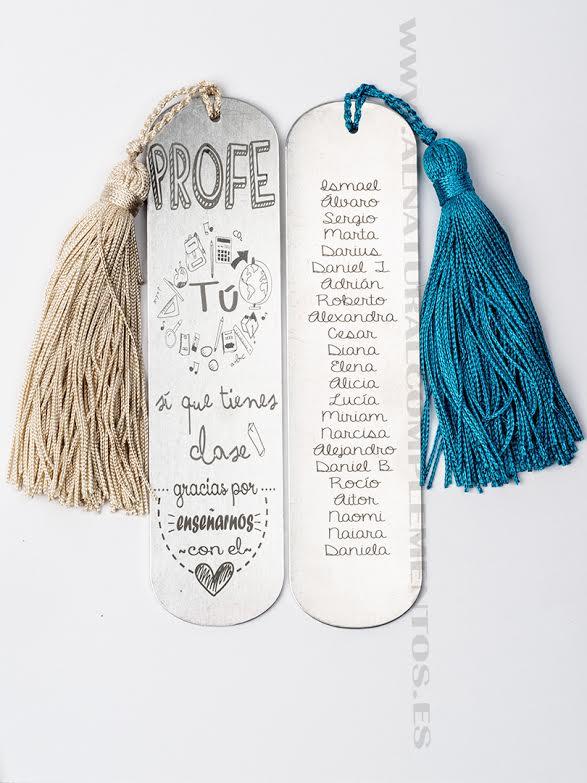 PROFE
TÚ
sí que tienes
clase
gracias por
ENSEÑARNOS
~con el~
Ismael
Álvaro
Sergio
Marta
Darius
Daniel I.
Adrián
Roberto
Alexandra
Cesar
Diana
Elena
Alicia
Lucía
Miriam
Narcisa
Alejandro
Daniel B.
Rocío
Aitor
Naomi
Naiara
Daniela
www.ALNATURALCOMPLEMENTOS.ES